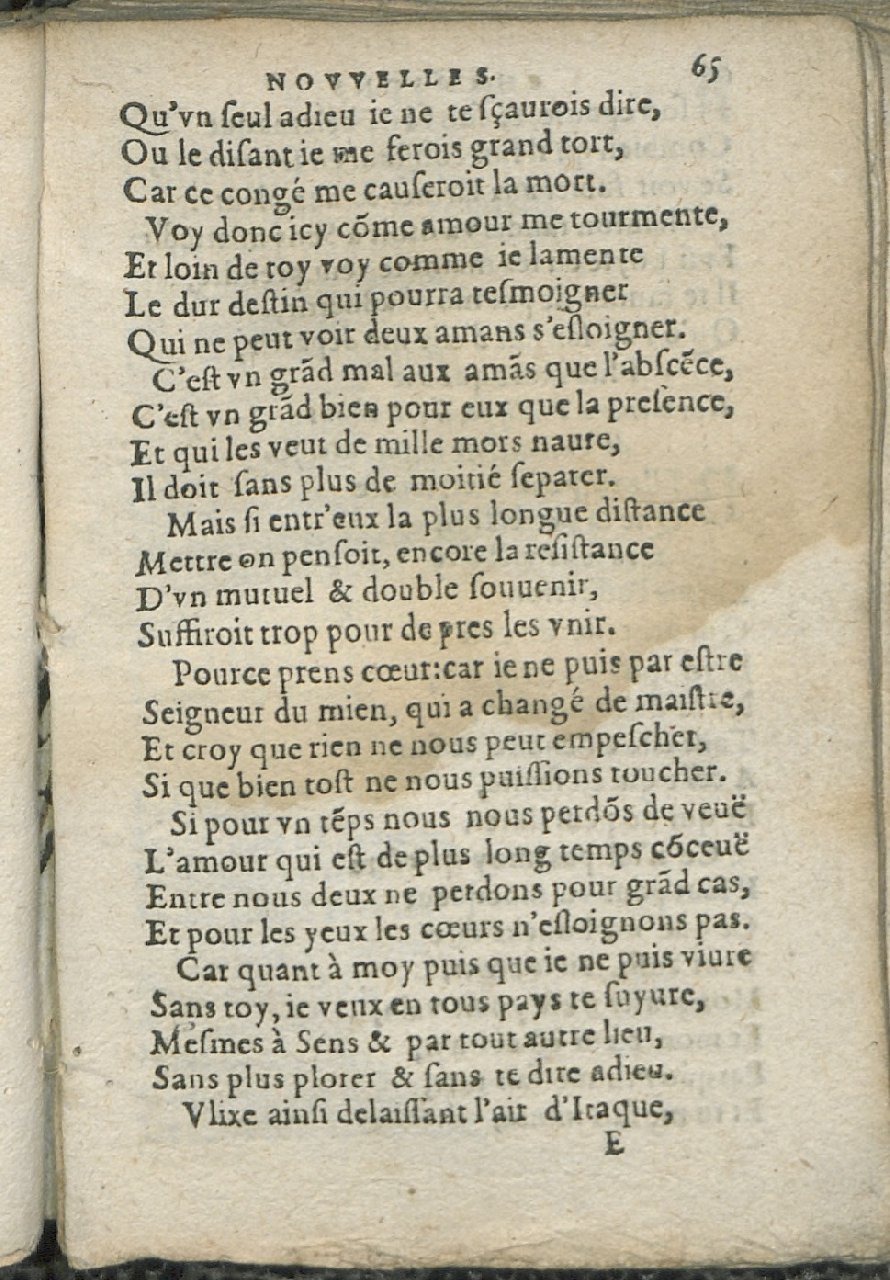 NOVVELLES. 65
Qu'vn ſeul adieu ie ne te ſçaurois dire,
Ou le diſant ie me ferois grand tort,
Car ce congé me cauſeroit la mort.
Voy donc icy cõme amour me tourmente,
Et loin de toy voy comme ie lamente
Le dur deſtin qui pourra teſmoigner
Qui ne peut voir deux amans s'eſloigner.
C'eſt vn grãd mal aux amãs que l'abſcẽce,
C'eſt vn grãd bien pour eux que la preſence,
Et qui les veut de mille mors naure,
Il doit ſans plus de moitié ſeparer.
Mais ſi entr'eux la plus longue diſtance
Mettre on penſoit, encore la reſiſtance
D'vn mutuel & double ſouuenir,
Suffiroit trop pour de pres les vnir.
Pource prens cœur: car ie ne puis par eſtre
Seigneur du mien, qui a changé de maiſtre,
Et croy que rien ne nous peut empeſcher,
Si que bien toſt ne nous puiſſions toucher.
Si pour vn tẽps nous nous perdõs de veuë
L'amour qui eſt de plus long temps cõceuë
Entre nous deux ne perdons pour grãd cas,
Et pour les yeux les cœurs n'eſloignons pas.
Car quant à moy puis que ie ne puis viure
Sans toy, ie veux en tous pays te ſuyure,
Meſmes à Sens & par tout autre lieu,
Sans plus plorer & ſans te dire adieu.
Vlixe ainſi delaiſſant l'air d'Itaque,
E